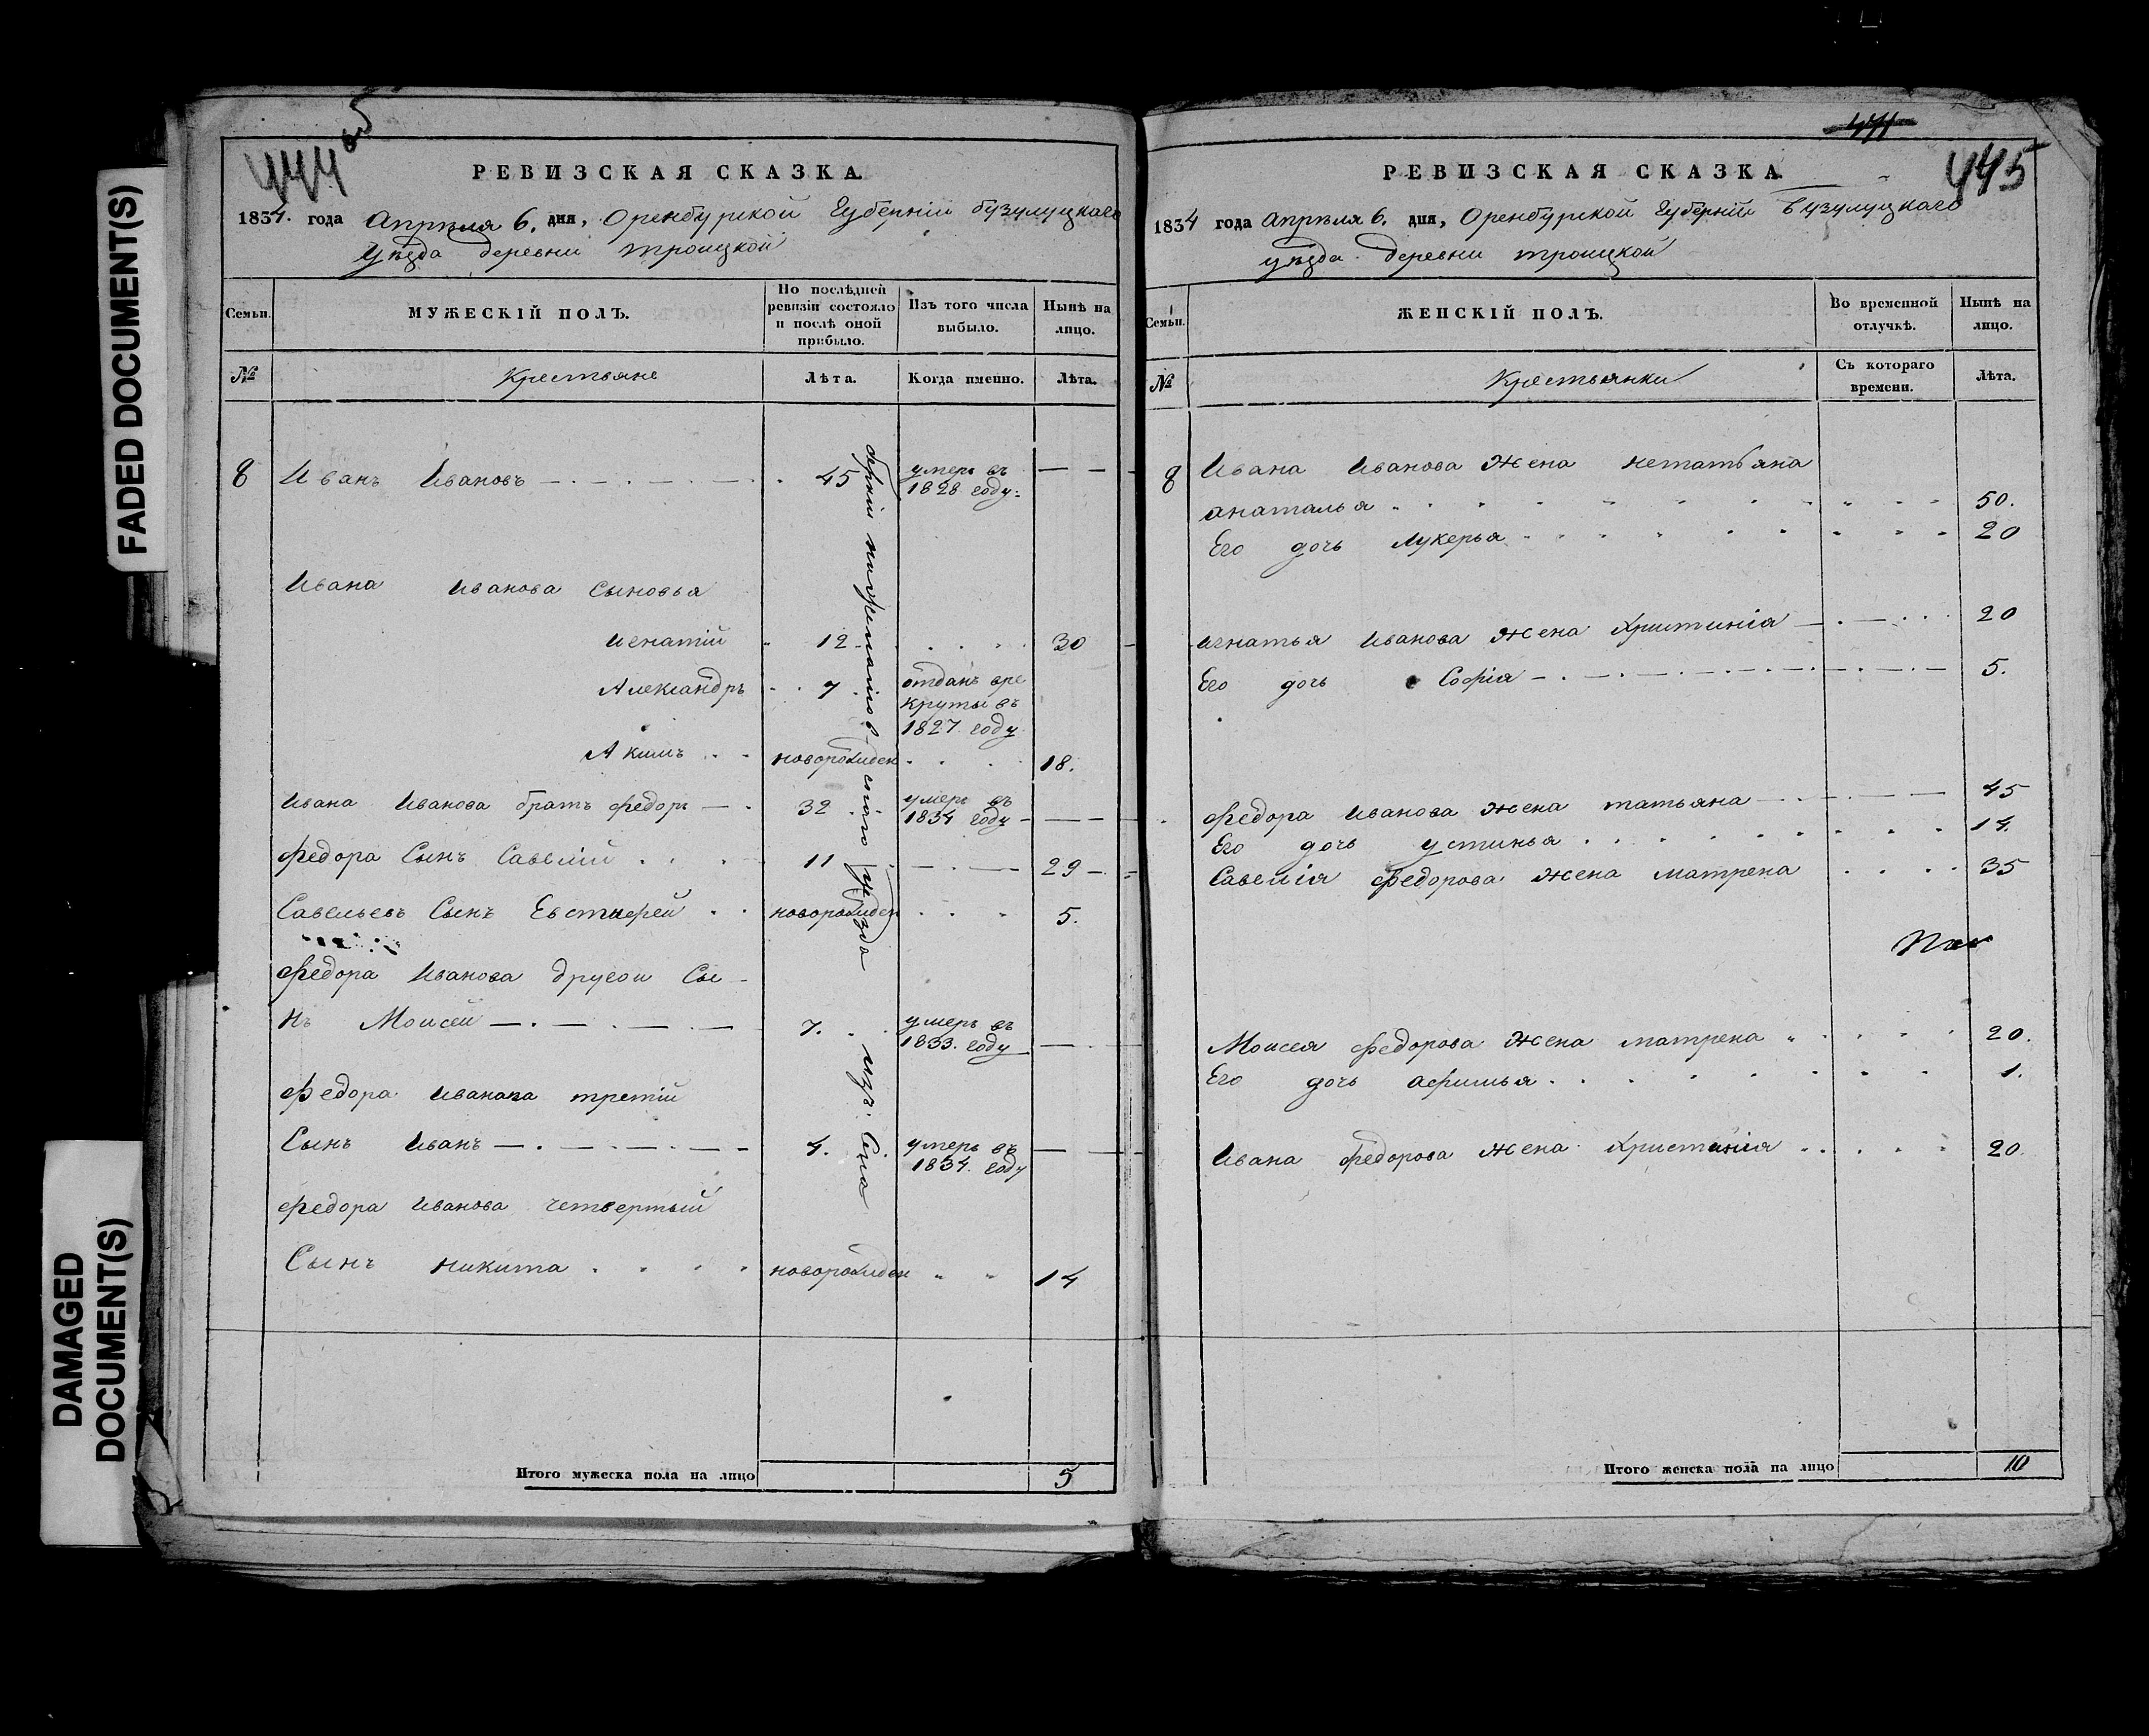 FADED DOCUMENT(S)
DAMAGED
DOCUMENT(S)
444 об
РЕВИЗСКАЯ СКАЗКА.
1834. года Апрѣля 6. дня, Оренбургской Губерніи бузулуцкаго
уѣзда деревни троицкой
Семьи.
МУЖЕСКІЙ ПОЛЪ.
По послѣдней
ревизіи состояло
и послѣ оной
прибыло.
Изъ того числа
выбыло.
Нынѣ на
лицо.
№
Крестьяне
Лѣта.
Когда именно.
Лѣта.
8 Иванъ Ивановъ 45 умеръ въ
1828 году.
Ивана Иванова Сыновья
игнатій 12 30
Александръ 7 отданъ вре
круты въ
1827 году
Акимъ новорожден 18.
Ивана Иванова братъ федоръ 32 умеръ въ
1834 году
федора Сынъ Савелій 11 29
Савельевъ Сынъ Евстифей новорожден 5.
федора Иванова другой Сы-
нъ Моисей 7. умеръ въ
1833. году
федора иванова третій
Сынъ иванъ 4. умеръ въ
1834. году
федора иванова четвертый
Сынъ никита новорожден 14
уѣзда
изъ
Итого мужеска пола на лицо 5
445
РЕВИЗСКАЯ СКАЗКА.
1834 года Апрѣля 6. дня, Оренбургской Губерніи бузулуцкаго
уѣзда деревни троицкой
Семьи.
ЖЕНСКІЙ ПОЛЪ.
Во временной
отлучкѣ.
Нынѣ на
лицо.
№
Крестьянки
Съ котораго
времени.
Лѣта.
8 Ивана Иванова жена нетатьяна
анаталья 50.
Его дочь лукерья 20
игнатья иванова жена христинія 20
Его дочь Софія 5.
федора иванова жена татьяна 45
Его дочь устинья 14.
Савелія федорова жена матрена 35
Моисея федорова жена матрена 20.
Его дочь афимья 1.
Ивана федорова жена христинія 20.
Итого женска пола на лицо 10